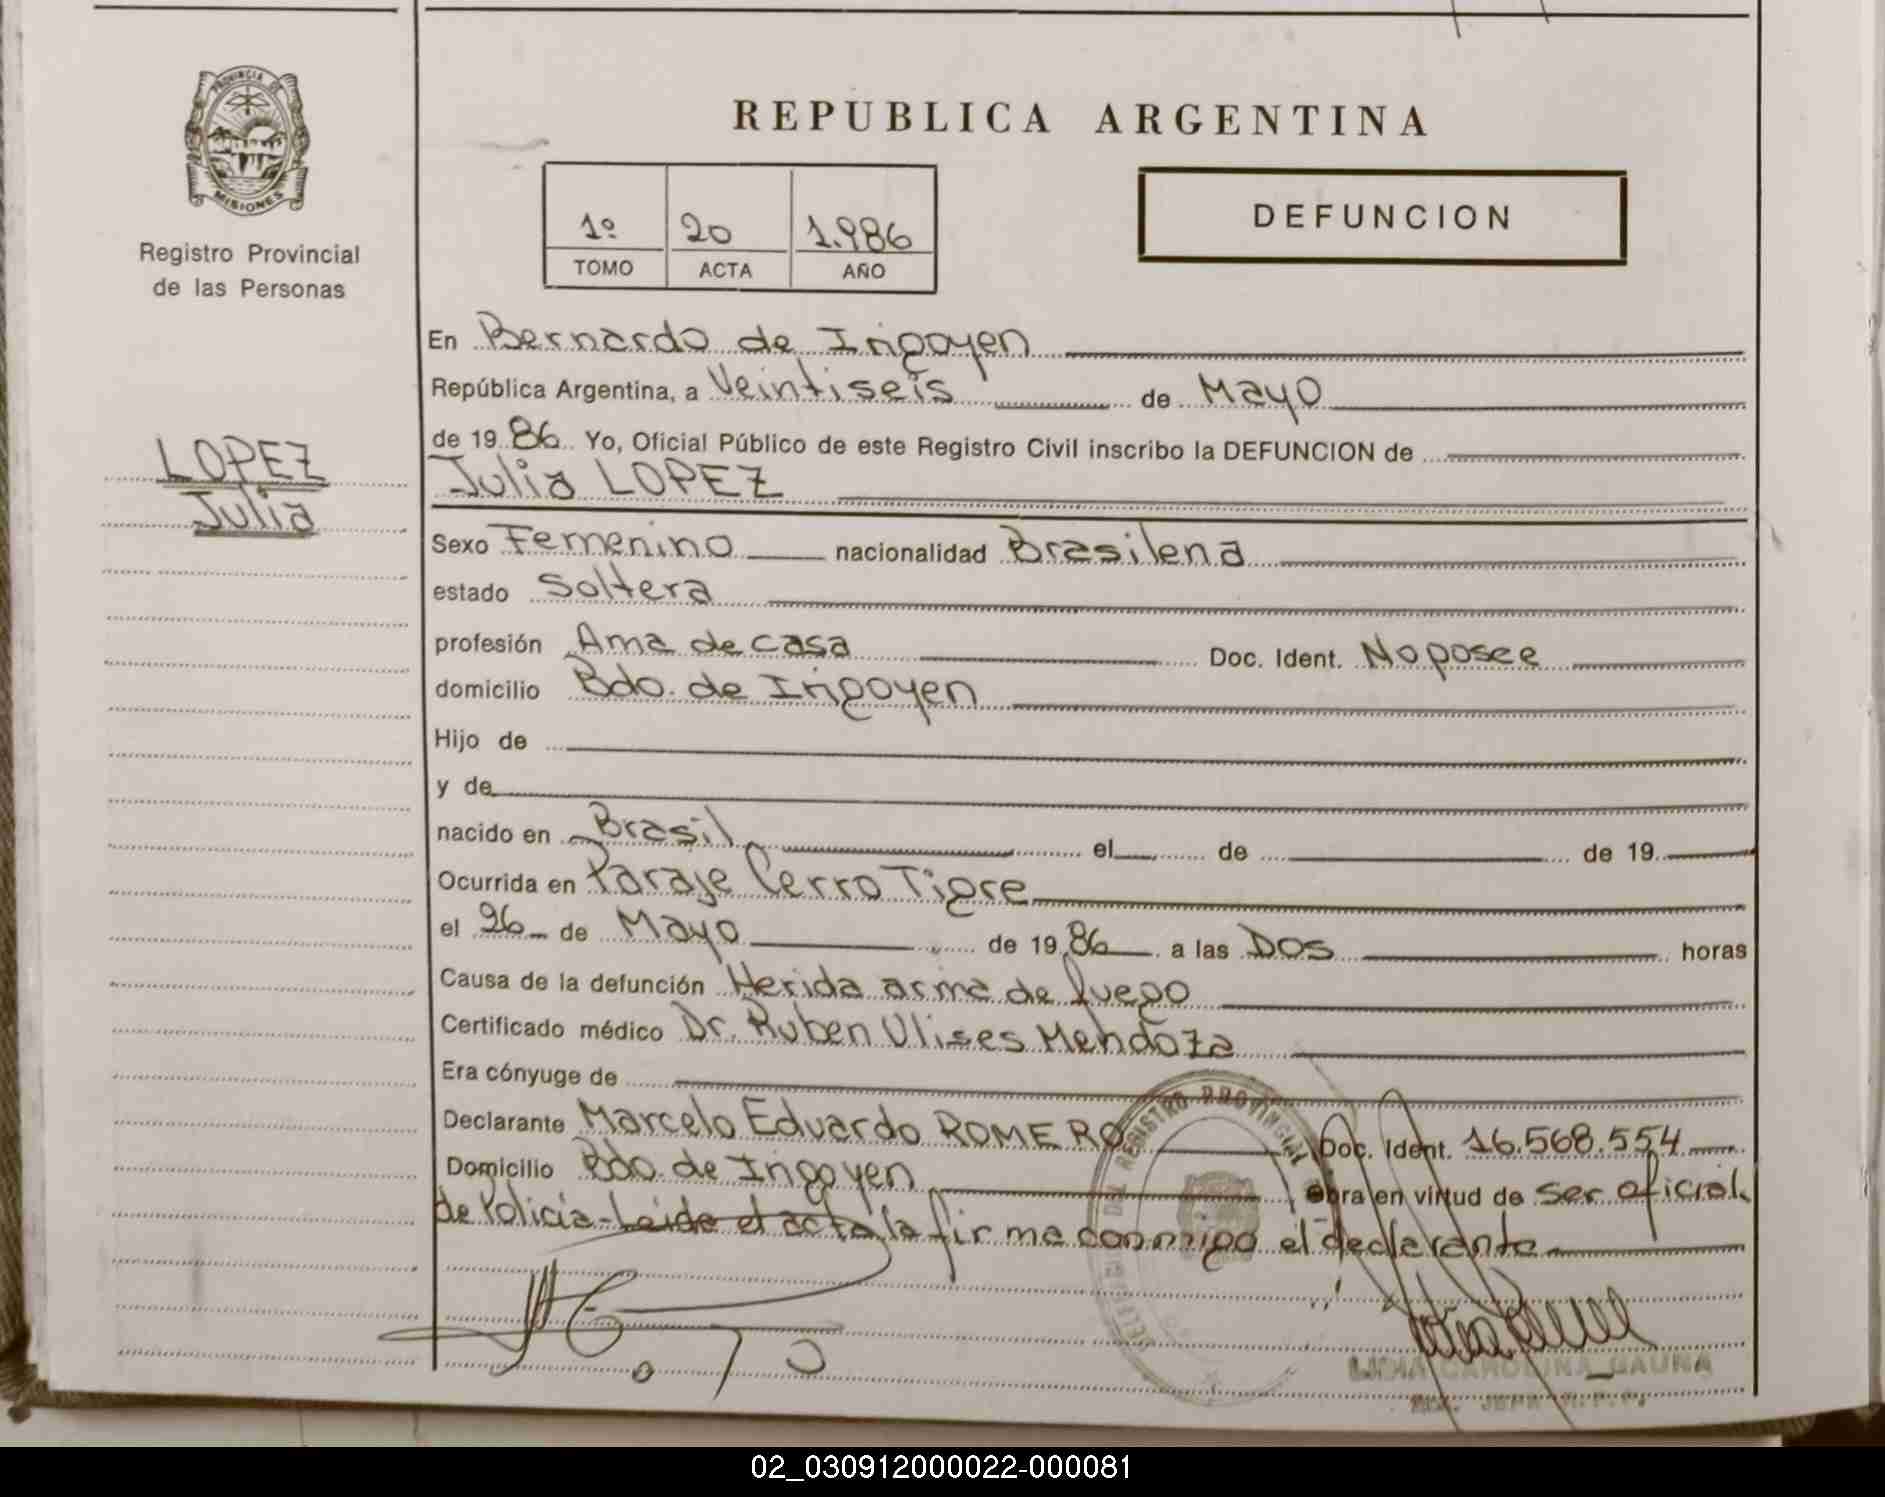 REPUBLICA ARGENTINA
PROVINCIA DE
MISIONES
Registro Provincial
de las Personas
1º 20 1.986
TOMO ACTA AÑO
DEFUNCION
LOPEZ
Julia
En Bernardo de Irigoyen
República Argentina, a Veintiseis de Mayo
de 19 86 Yo, Oficial Público de este Registro Civil inscribo la DEFUNCION de
Julia LOPEZ
Sexo Femenino nacionalidad Brasilena
estado Soltera
profesión Ama de casa Doc. Ident. No posee
domicilio Bdo. de Irigoyen
Hijo de
y de
nacido en Brasil el de de 19
Ocurrida en Paraje Cerro Tigre
el 26 de Mayo de 19 86 a las Dos horas
Causa de la defunción Herida arma de fuego
Certificado médico Dr. Ruben Ulises Mendoza
Era cónyuge de
Declarante Marcelo Eduardo ROMERO Doc. Ident. 16.568.554
Domicilio Bdo. de Irigoyen Obra en virtud de ser oficial
de Policia - Leida el acta la firma conmigo el declarante
REGISTRO PROVINCIAL
CAROLINA GAUNA
02_030912000022-000081